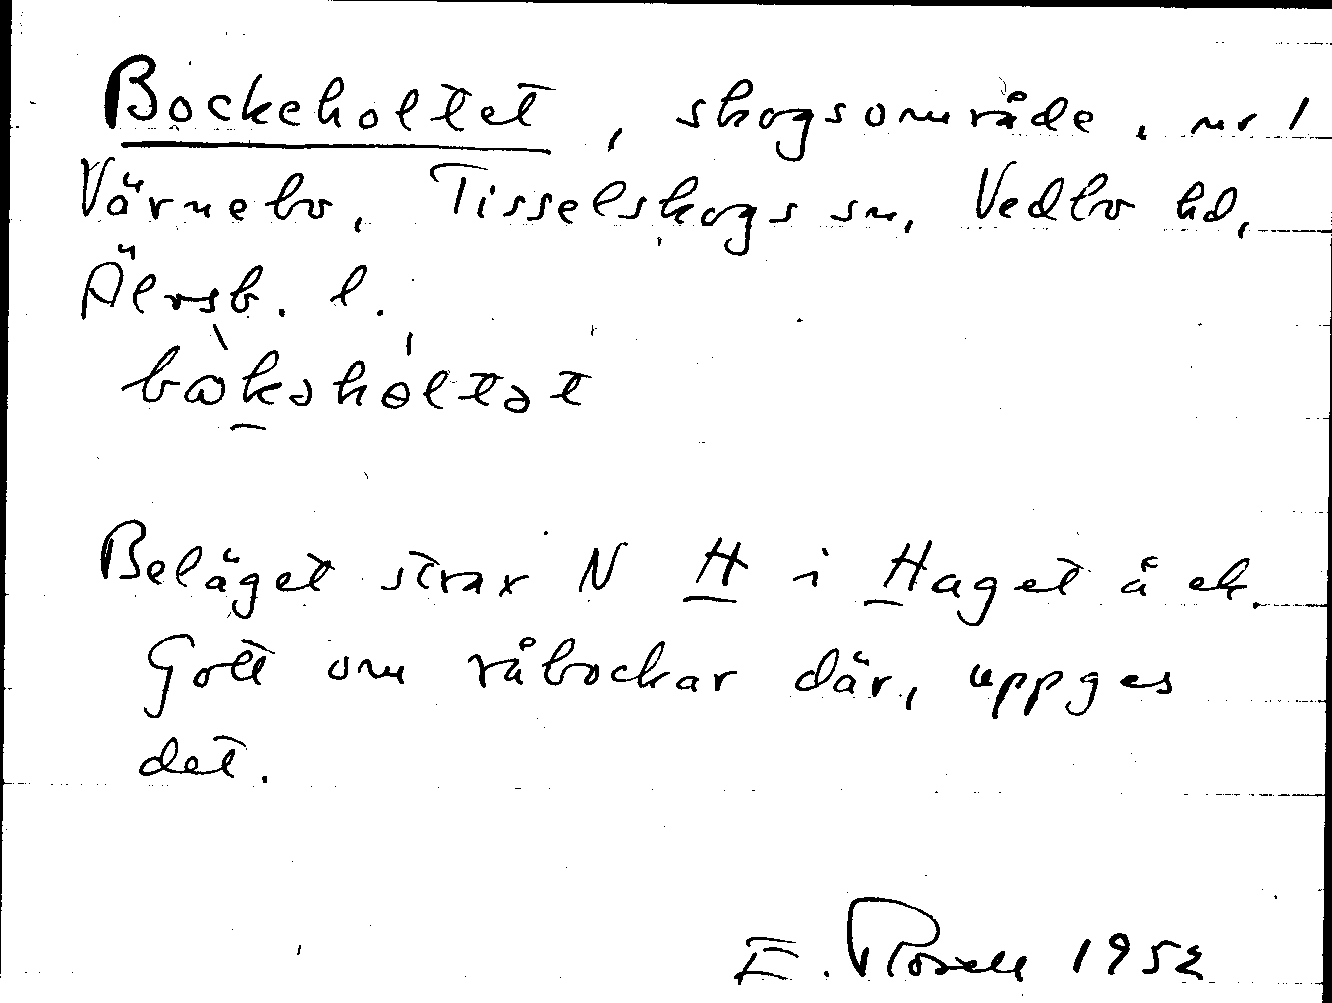 Bockeholtet, skogsområde, nr 1
Värnebo, Tisselskogs sn, Vedbo hd,
Älvsb. l.
bòkəhóltət
Beläget strax N H i Haget å ek.
Gott om råbockar där, uppges
det.
E. Rosell 1952